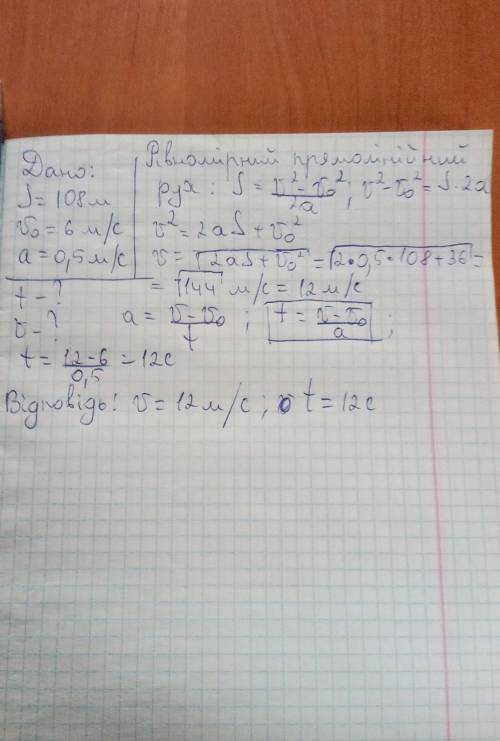 Дано:
S = 108 м
v₀ = 6 м/с
a = 0,5 м/с
t - ?
v - ?
Рівномірний прямолінійний
рух: S = (v² - v₀²)/2a ; v² - v₀² = S · 2a
v² = 2aS + v₀²
v = √(2aS + v₀²) = √(2·0,5·108+36) =
= √144 м/с = 12 м/с
a = (v - v₀)/t ; t = (v - v₀)/a ;
t = (12 - 6)/0,5 = 12с
Відповідь: v = 12 м/с ; t = 12с